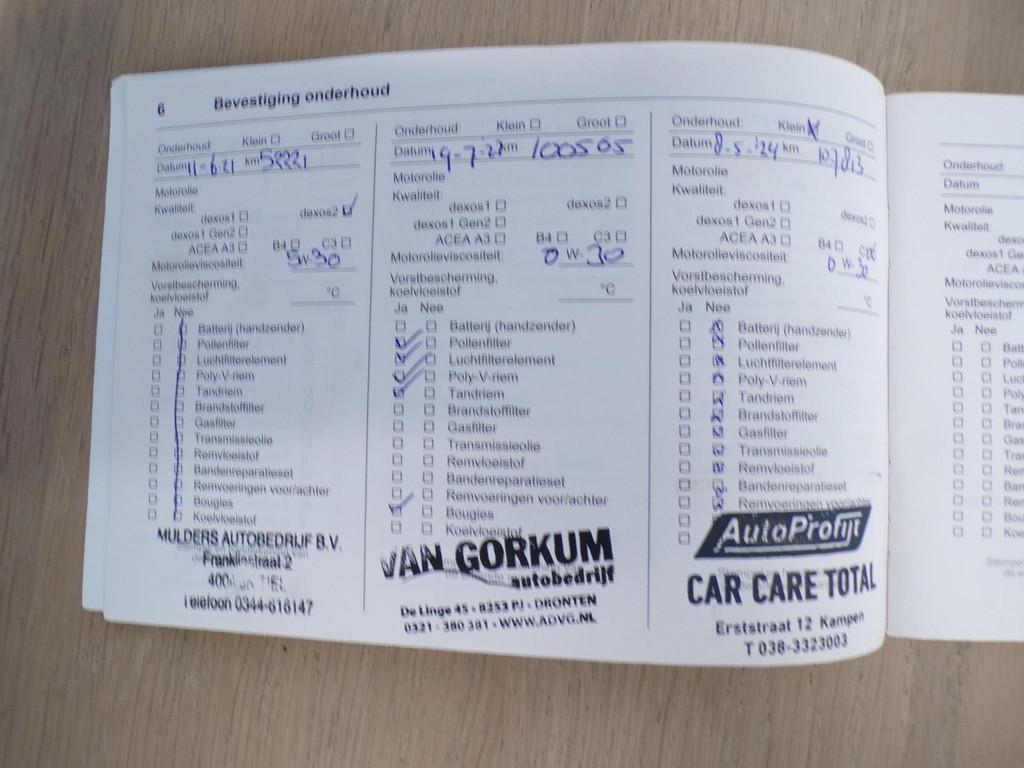 6 Bevestiging onderhoud
Onderhoud: Klein Groot
Datum 11-6-21 km 58221
Motorolie
Kwaliteit:
dexos1 dexos2
dexos1 Gen2
ACEA A3 B4 C3
Motorolieviscositeit: 5W-30
Vorstbescherming,
koelvloeistof °C
Ja Nee
Batterij (handzender)
Pollenfilter
Luchtfilterelement
Poly-V-riem
Tandriem
Brandstoffilter
Gasfilter
Transmissieolie
Remvloeistof
Bandenreparatieset
Remvoeringen voor/achter
Bougies
Koelvloeistof
MULDERS AUTOBEDRIJF B.V.
Franklinstraat 2
TIEL
Telefoon 0344-616147
Onderhoud: Klein Groot
Datum 19-7- km 100565
Motorolie
Kwaliteit:
dexos1 dexos2
dexos1 Gen2
ACEA A3 B4 C3
Motorolieviscositeit: 0 W- 30
Vorstbescherming,
koelvloeistof °C
Ja Nee
Batterij (handzender)
Pollenfilter
Luchtfilterelement
Poly-V-riem
Tandriem
Brandstoffilter
Gasfilter
Transmissieolie
Remvloeistof
Bandenreparatieset
Remvoeringen voor/achter
Bougies
Koelvloeistof
VAN GORKUM
autobedrijf
De Linge 45 - 8253 PJ - DRONTEN
0321 - 380 381 - WWW.ADVG.NL
Onderhoud: Klein Groot
Datum 8-5-'24 km 107813
Motorolie
Kwaliteit:
dexos1 dexos2
dexos1 Gen2
ACEA A3 B4 C3
Motorolieviscositeit: 0 W-30
Vorstbescherming,
koelvloeistof °C
Ja Nee
Batterij (handzender)
Pollenfilter
Luchtfilterelement
Poly-V-riem
Tandriem
Brandstoffilter
Gasfilter
Transmissieolie
Remvloeistof
Bandenreparatieset
Remvoeringen voor/achter
AutoProfijt
CAR CARE TOTAL
Erststraat 12 Kampen
T 038-3323003
Onderhoud:
Datum
Motorolie
Kwaliteit:
dexo
dexos1 Ge
ACEA
Motorolievisco
Vorstbescherm
koelvloeistof
Ja Nee
Batt
Poll
Luc
Poly
Tan
Bra
Gas
Tra
Rem
Ban
Rem
Bou
Koe